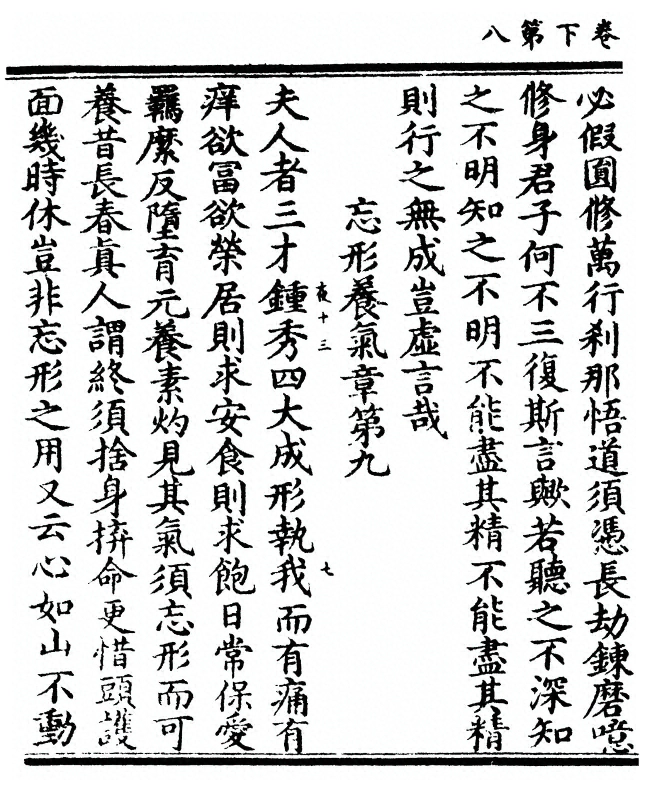 卷下第八
必假圓修萬行刹那悟道須憑長劫鍊磨噫
修身君子何不三復斯言歟若聽之不深知
之不明知之不明不能盡其精不能盡其精
則行之無成豈虛言哉
忘形養氣章第九
夫人者三才鍾秀四大成形執我而有痛有
夜十三
七
痒欲冨欲榮居則求安食則求飽日常保愛
羈縻反墮育元養素灼見其氣須忘形而可
養昔長春眞人謂終須捨身拚命更惜頭護
面幾時休豈非忘形之用又云心如山不動